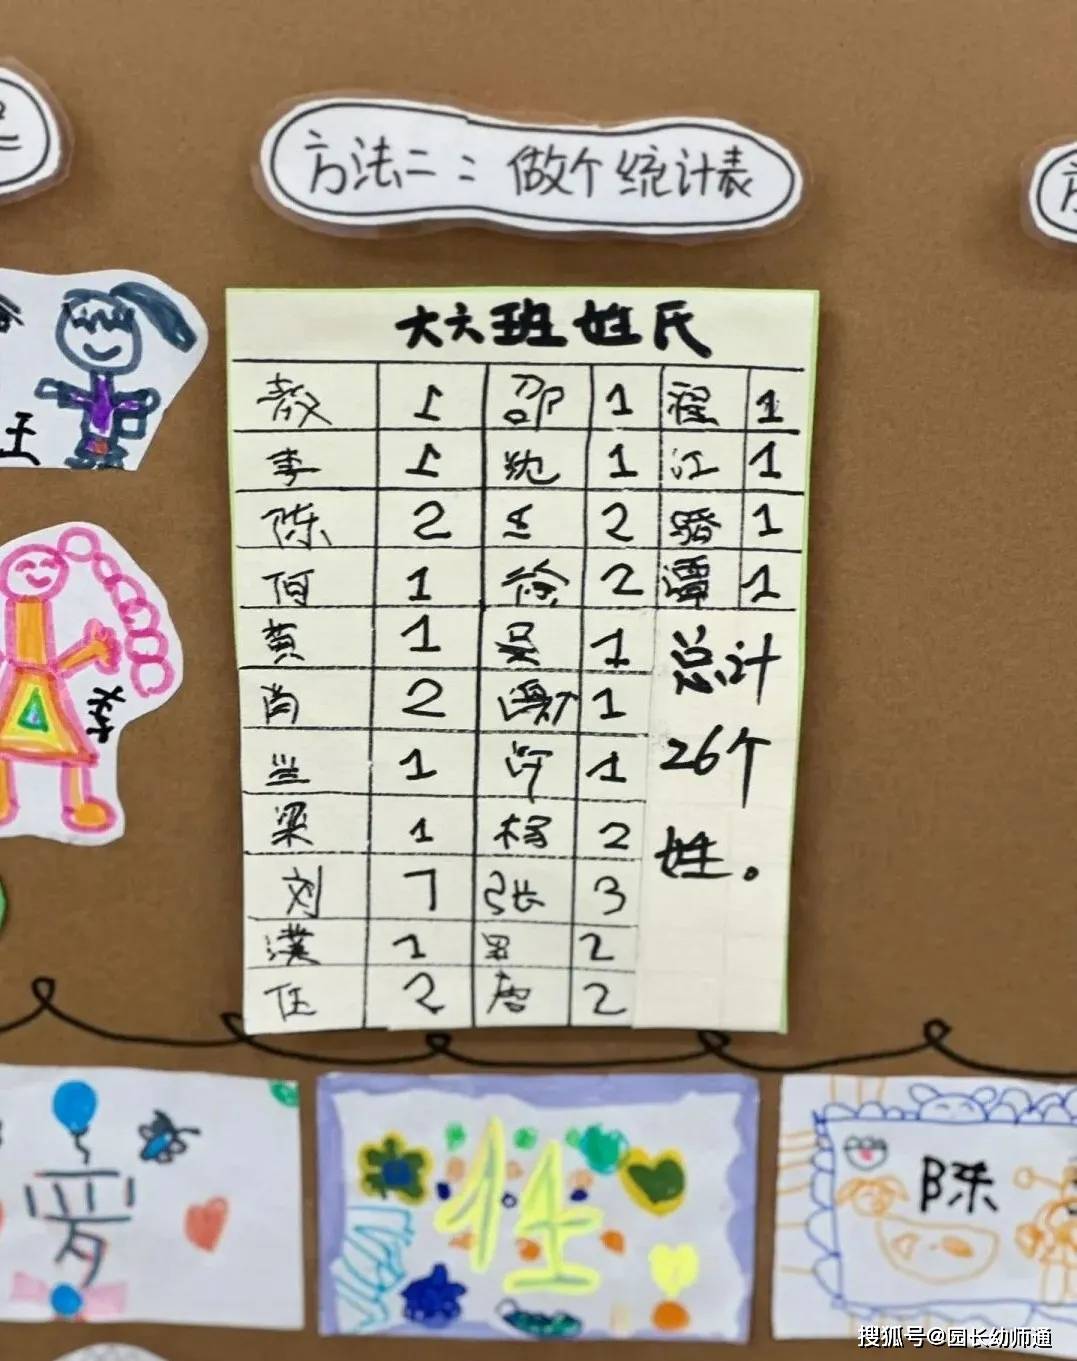 方法二：做个统计表
大六班姓氏
敖 1 邵 1 程 1
李 1 沈 1 江 1
陈 2 2 1
何 1 徐 2 谭 1
黄 1 吴 1
肖 2 谢 1
兰 1 许 1
梁 1 杨 2
刘 7 张 3
濮 1 2
任 2 唐 2
总计
26个
姓。
王
李
罗
任
陈
搜狐号@园长幼师通